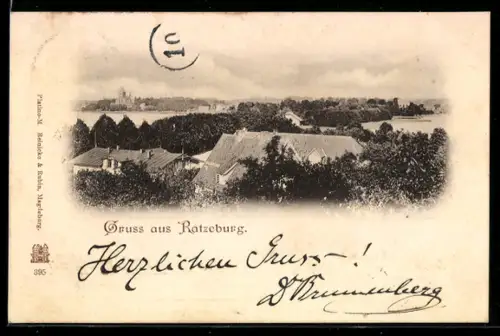 10
Platino-M. Reinicke & Rubin, Magdeburg.
395
Gruss aus Ratzeburg.
Herzlichen Gruss – !
Dr Brunnenberg